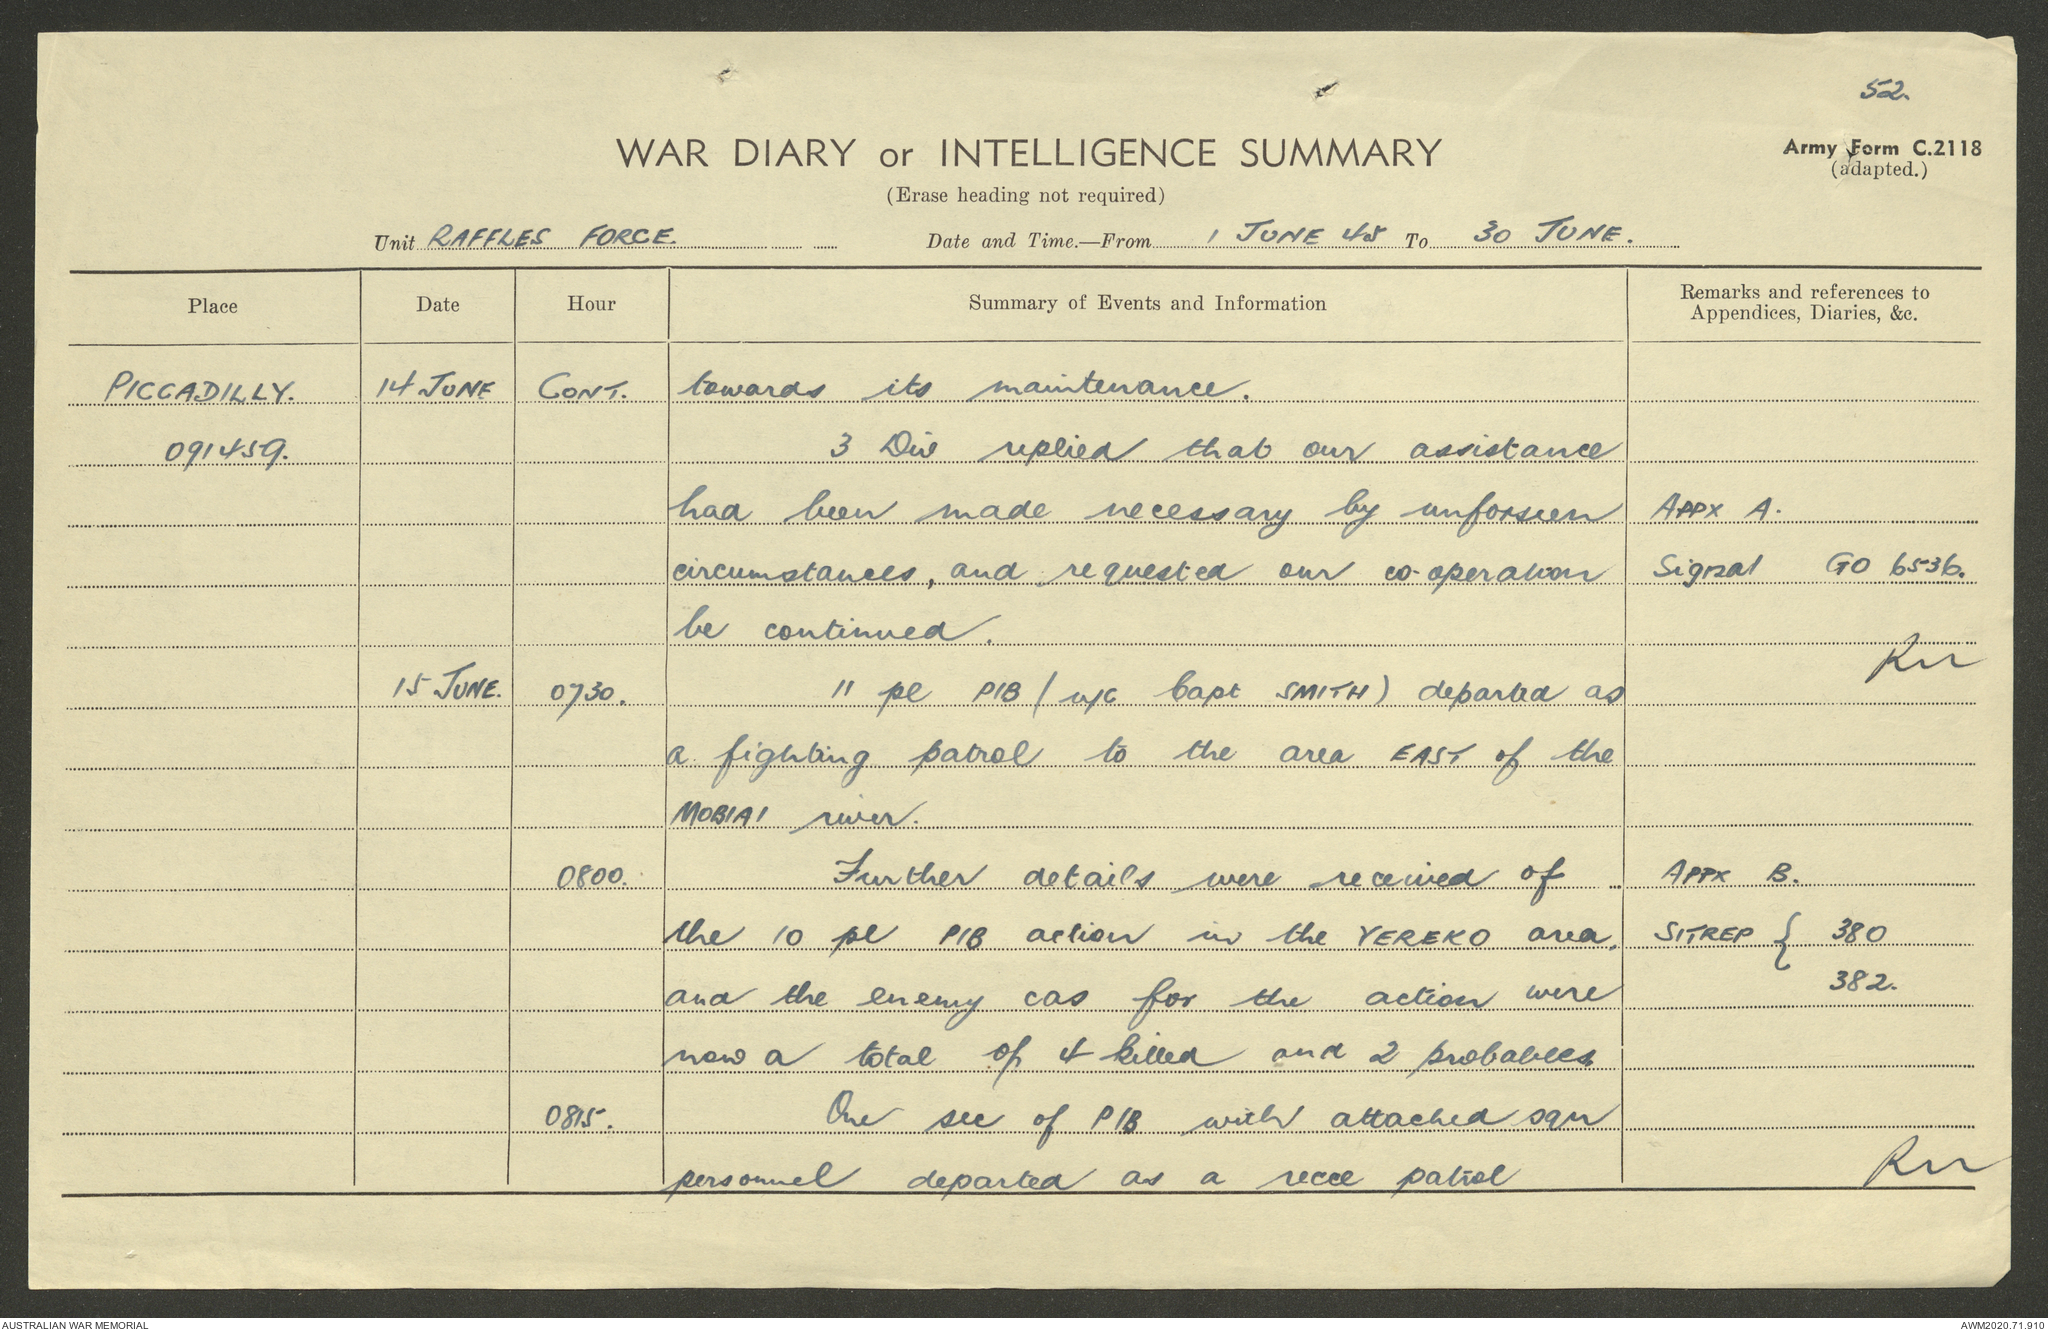 52.
WAR DIARY or INTELLIGENCE SUMMARY
Army Form C.2118
(adapted.)
(Erase heading not required)
Unit RAFFLES FORCE. Date and Time.—From 1 JUNE 45 To 30 JUNE.
Place Date Hour Summary of Events and Information Remarks and references to
Appendices, Diaries, &c.
PICCADILLY. 14 JUNE CONT. towards its maintenance.
091459. 3 Div replied that our assistance
had been made necessary by unforseen APPX A.
circumstances, and requested our co-operation Signal GO 6536.
be continued.
15 JUNE. 0730. 11 pl PIB (u/c Capt SMITH) departed as
a fighting patrol to the area EAST of the
MOBIAI river.
0800. Further details were received of APPX B.
the 10 pl PIB action in the YEREKO area, SITREP { 380
and the enemy cas for the action were 382.
now a total of 4 killed and 2 probables.
0815. One sec of PIB with attached sqn
personnel departed as a recce patrol
AUSTRALIAN WAR MEMORIAL
AWM2020.71.910